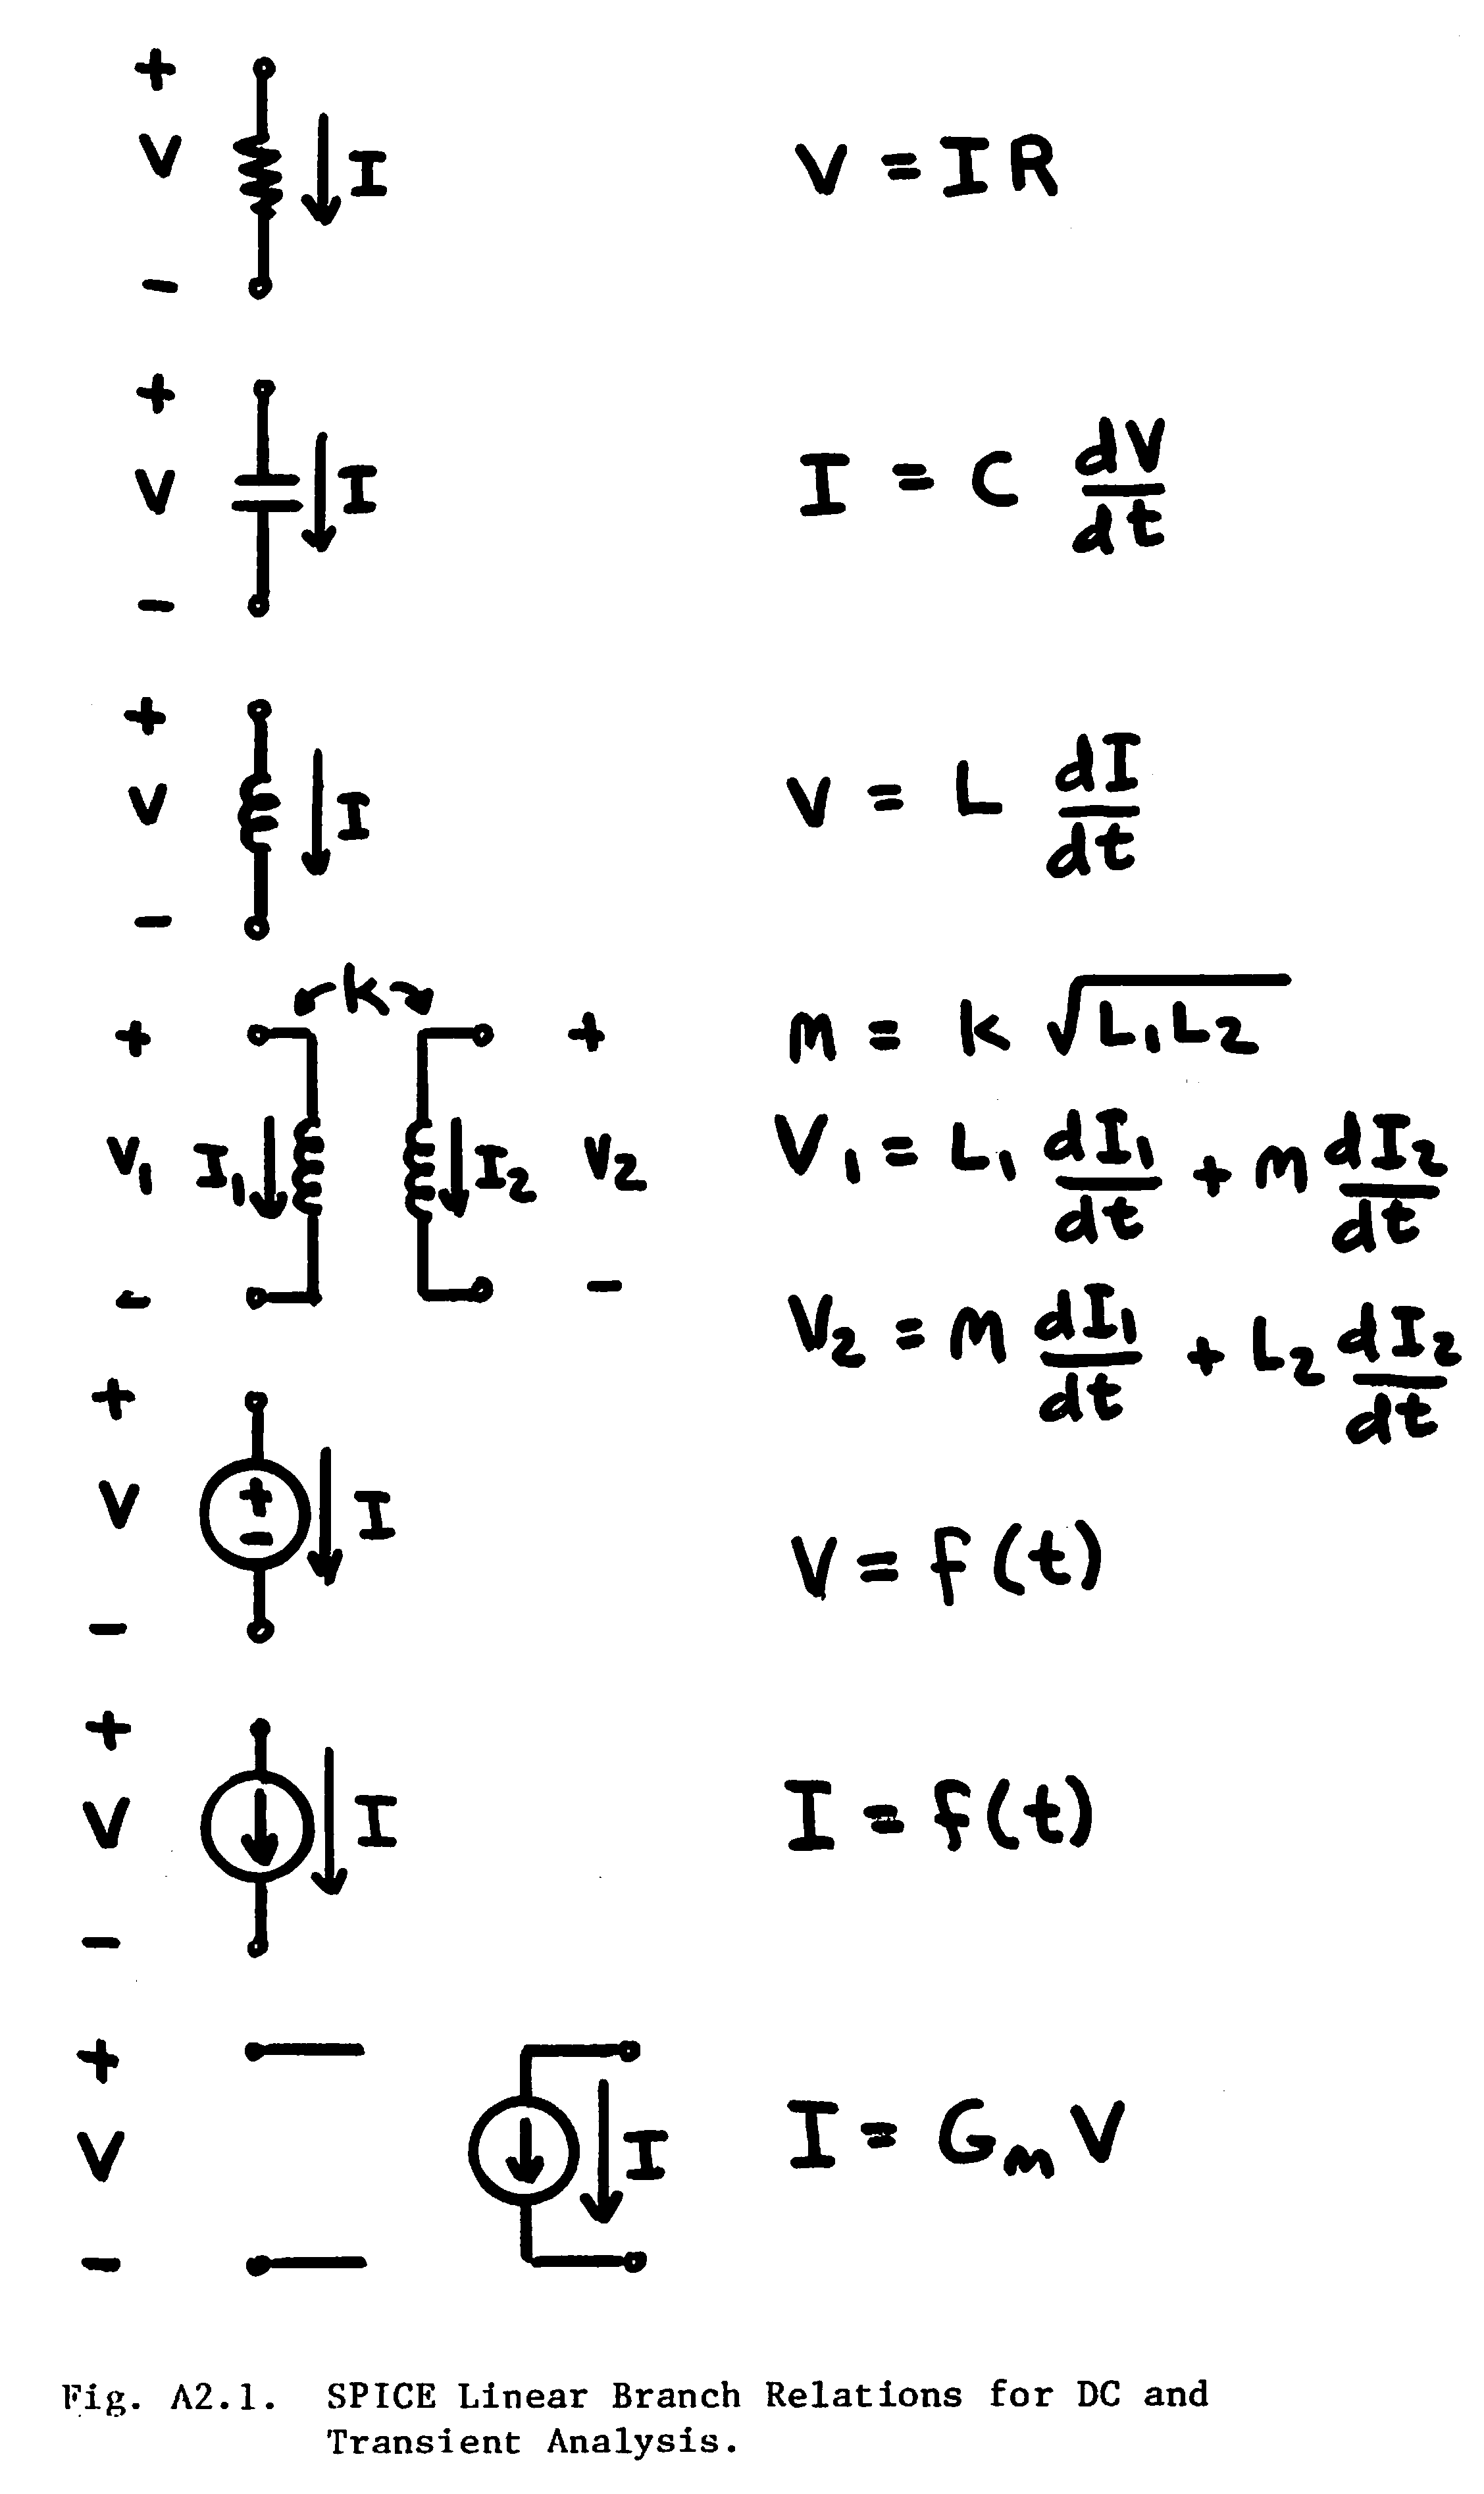 +
V I V = I R
-
+
V I I = C dV/dt
-
+
V I V = L dI/dt
-
k
+ + M = k √L₁L₂
V₁ I₁ I₂ V₂ V₁ = L₁ dI₁/dt + M dI₂/dt
- -
V₂ = M dI₁/dt + L₂ dI₂/dt
+
V + - I V = f(t)
-
+
V I I = f(t)
-
+
V I I = GₘV
-
Fig. A2.1. SPICE Linear Branch Relations for DC and
Transient Analysis.